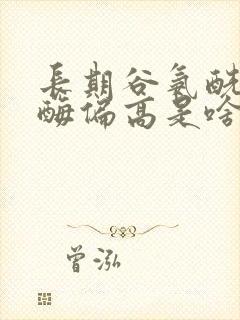 長期谷氨酰
酶偏高是啥
曾泓